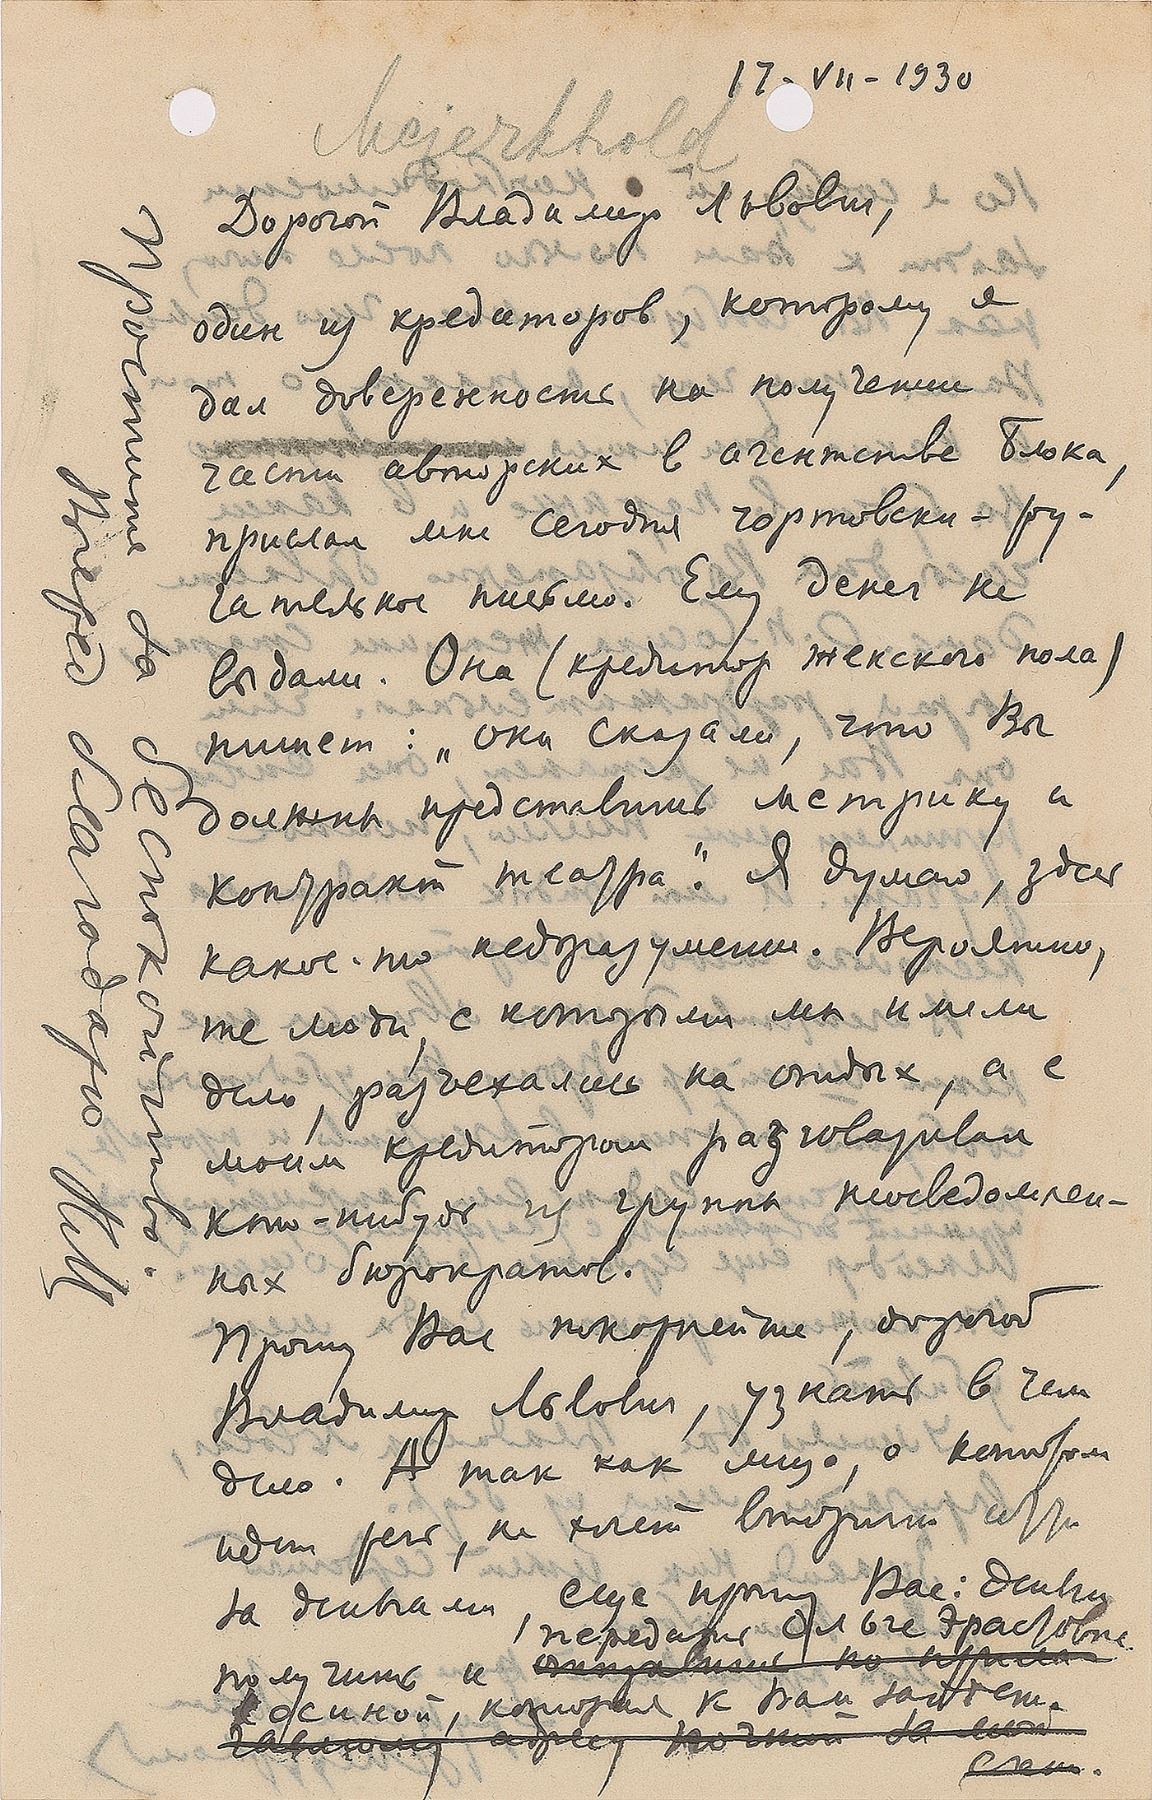 17-VII-1930
Mejerkhold
Дорогой Владимир Львович,
один из кредиторов, которому я
дал доверенность на получение
части авторских в агентстве Блока,
прислал мне сегодня чортовски-ру-
гательное письмо. Ему денег не
выдали. Она (кредитор женского пола)
пишет: „они сказали, что Вы
должны представить метрику и
контракт театра". Я думаю, здесь
какое-то недоразумение. Вероятно,
те люди, с которыми мы имели
дело, разъехались на отдых, а с
моим кредитором разговаривал
кто-нибудь из группы неосведомлен-
ных бюрократов.
Прошу Вас покорнейше, дорогой
Владимир Львович, узнать в чем
дело. А так как лицо, о котором
идет речь, не хочет вторично
за деньгами, еще прошу Вас: деньги
передать Ольге Эрастовне
получить и отправить по прила-
Косиной, которая к Вам зайдет.
гаемому адресу почтой за мой
счет.
Простите за беспокойство.
Вперед благодарю